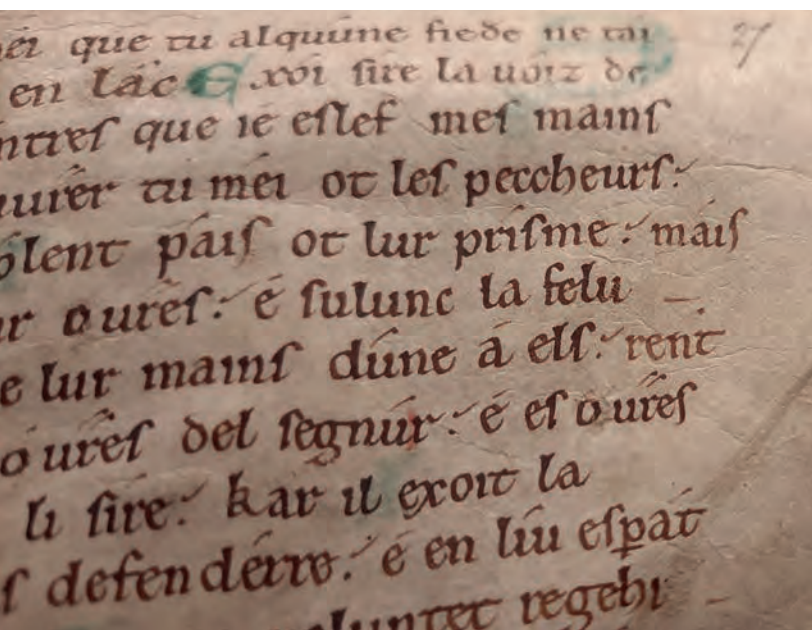 méi que tu alquune fiede ne tai
en lác Exoi sire la uoiz de
27
ntres que ié eslef mes mains
uurér tu méi ot les peccheurs:
lent páis ot lur prisme: máis
ur ourés: é sulunc la felu
e lur mains dúne á els: rent
óurés del segnúr: é es óurés
li sire: kar il exoit la
s defendérre: é en líu espat
regehi